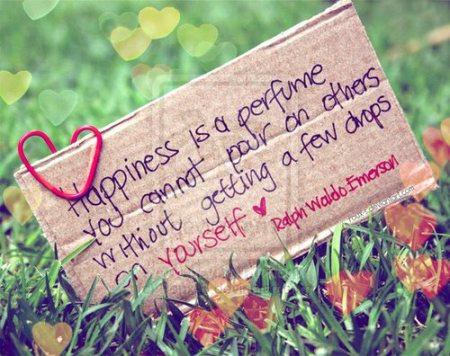 Happiness is a perfume
you cannot pour on others
without getting a few drops
on yourself ♥ Ralph Waldo Emerson